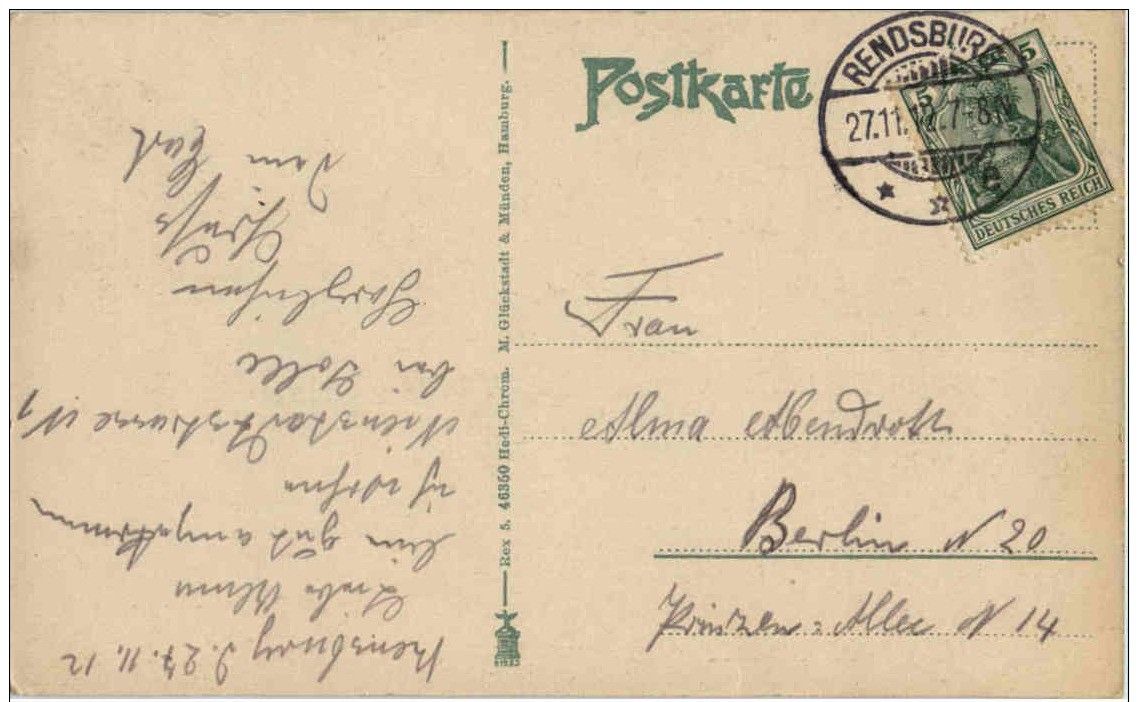 Postkarte
RENDSBURG
27.11.12.7-8N.
e
5 5
DEUTSCHES REICH
Frau
Alma Abendroth
Berlin N 20
Prinzen-Allee N 14
Rex 5. 46350 Hedi-Chrom. M. Glückstadt & Münden, Hamburg.
Rensburg d. 27.11.12
Liebe Alma
bin gut angekommen
ich wohne
Nienstadtstrasse N 1
bei Golle
Herzlichen
Gruß
Dein